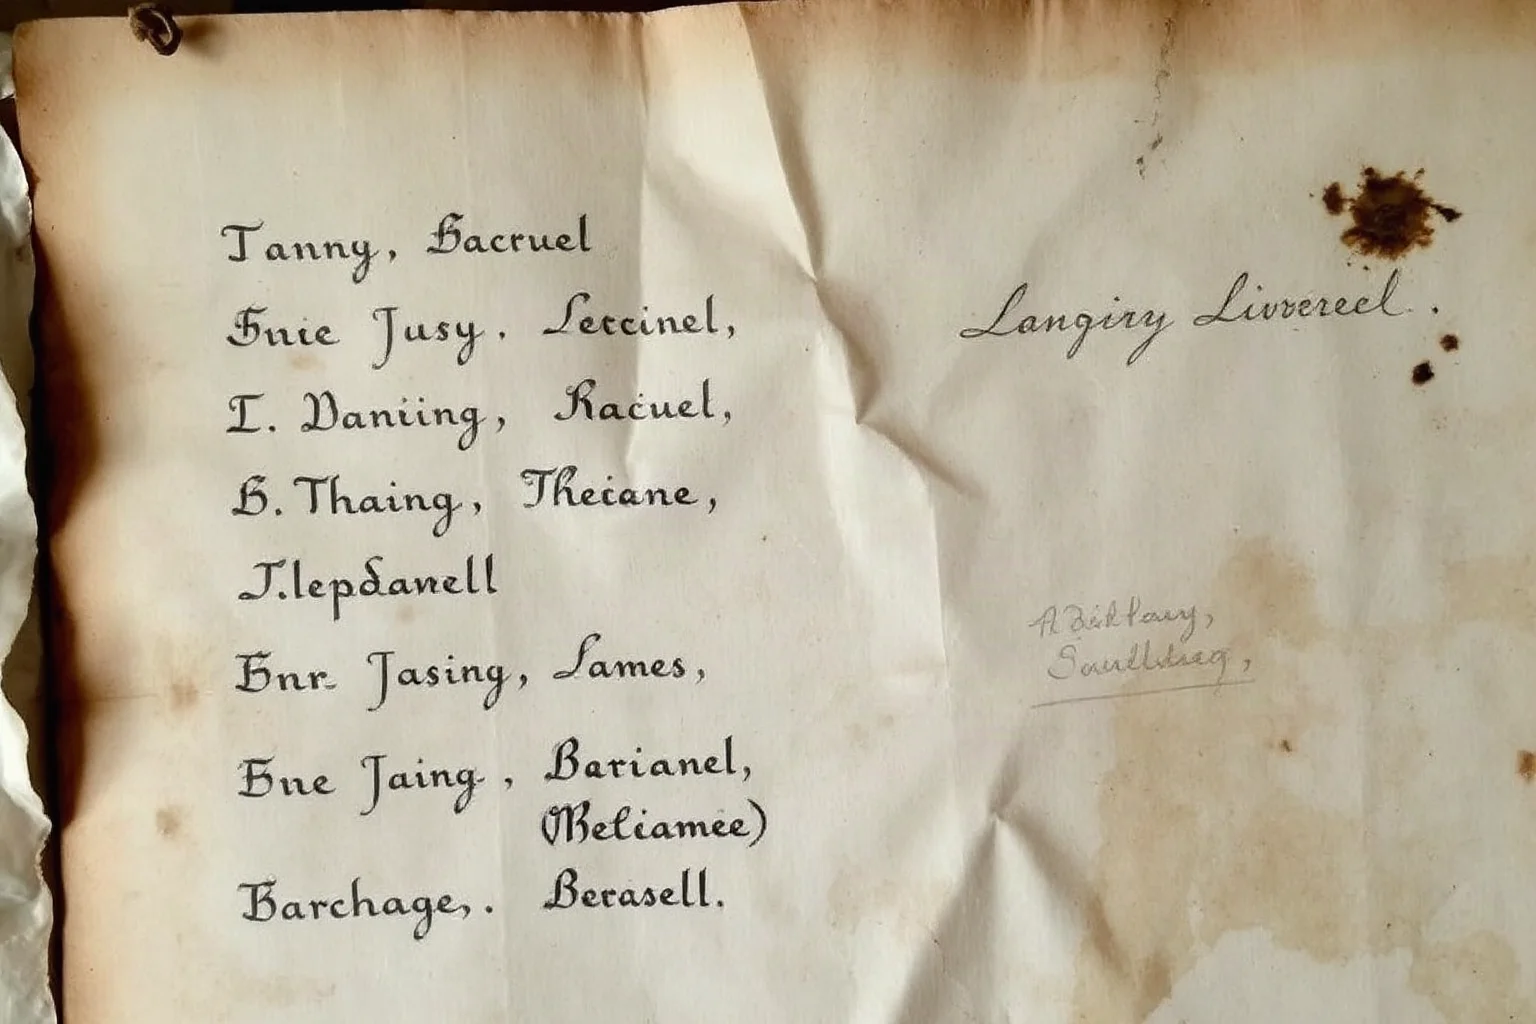 Tanny, Sacruel
Snie Jusy. Leccinel,
I. Daniing, Racuel,
B. Thaing, Theiane,
J.lepdanell
Enr. Jasing, Lames,
Ene Jaing, Barianel,
(Meliamee)
Barchage,. Berasell.
Langiry Livvereel.